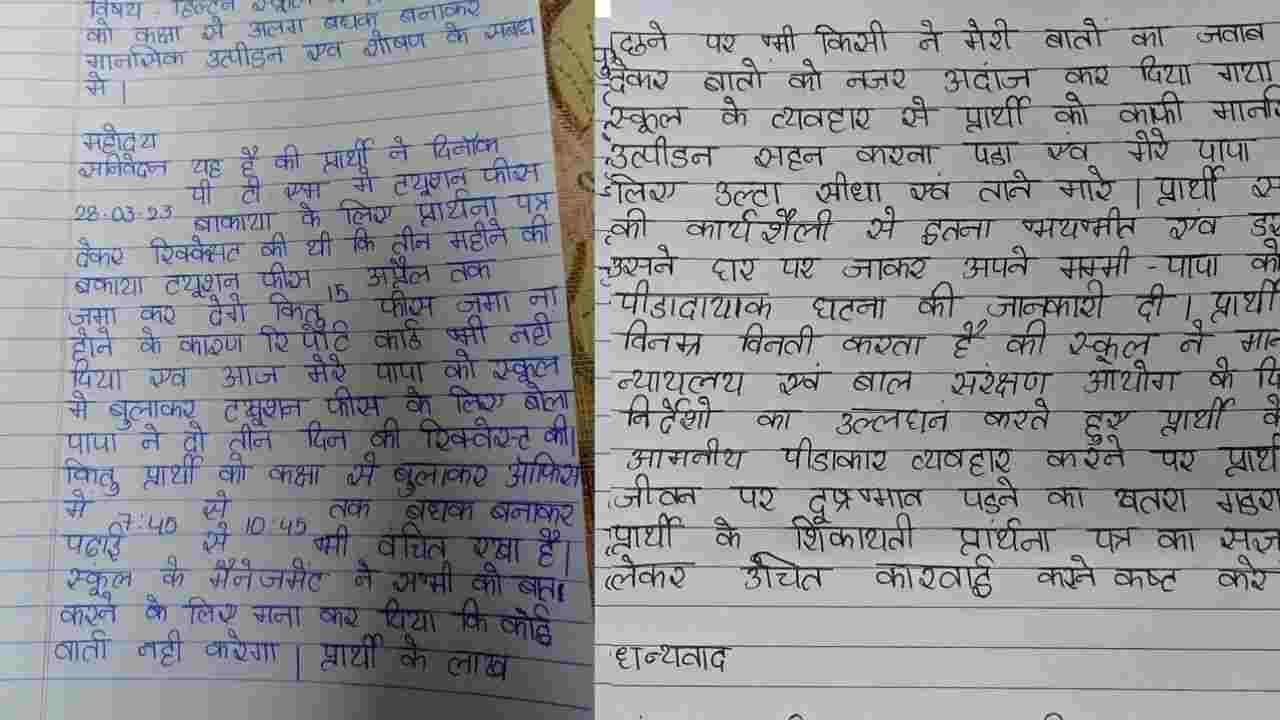 विषय : हिल्टन स्कूल
को कक्षा से अलग बधक बनाकर
मानसिक उत्पीडन एव शोषण के सबंध
मे |
महोदय
सविनेदन यह है की प्रार्थी ने दिनाँक
28-03-23 पी टी एम मे टयूशन फीस
बाकाया के लिए प्रार्थना पत्र
देकर रिक्वेसट की थी कि तीन महीने की
बकाया टयूशन फीस 15 अप्रैल तक
जमा कर देगे कितु फीस जमा ना
होने के कारण रिर्पोट कार्ड भी नही
दिया एव आज मेरे पापा को स्कूल
मे बुलाकर टयूशन फीस के लिए बोला
पापा ने दो तीन दिन की रिक्वेस्ट की|
कितु प्रार्थी को कक्षा से बुलाकर ऑफिस
में 7:45 से 10:45 तक बधक बनाकर
पढाई से भी वंचित रखा है|
स्कूल के मैनेजमेंट ने सभी को बात
करने के लिए मना कर दिया कि कोई
वार्ता नही करेगा | प्रार्थी के लाख
पुछने पर भी किसी ने मेरी बातों का जवाब
देकर बातों को नजर अदांज कर दिया गया
स्कूल के व्यवहार से प्रार्थी को काफी
उत्पीडन सहन करना पडा एंव मेरे पापा
लिए उल्टा सीधा एवं ताने मारे | प्रार्थी
की कार्यशैली से इतना भयभीत एंव
उसने घर पर जाकर अपने मम्मी - पापा को
पीडादायाक घटना की जानकारी दी | प्रार्थी
विनम्र विनती करता है की स्कूल ने
न्यायलय एवं बाल संरक्षण आयोग के
निर्देशो का उल्लघंन करते हुए प्रार्थी के
आमनीय पीडाकार व्यवहार करने पर
जीवन पर दूप्रभाव पडने का खतरा
प्रार्थी के शिकायती प्रार्थना पत्र का
लेकर उचित कारवाई करने कष्ट करे
धन्यवाद